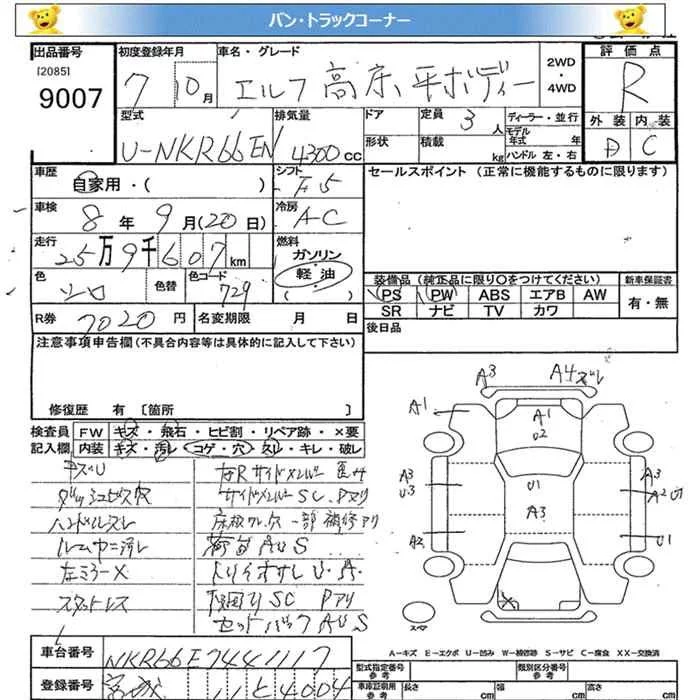 バン・トラックコーナー
出品番号
[2085]
9007
初度登録年月
7 10月
車名・グレード
エルフ高床平ボディー
2WD
・
4WD
評価点
R
外装 内装
D C
型式
U-NKR66EN
排気量
4300cc
ドア
形状
定員
3人
積載
kg
ディーラー・並行
モデル年式 年
ハンドル 左・右
車歴
自家用・( )
シフト
F5
車検
8年9月(20日)
冷房
A-C
走行
25万9千607km
燃料
ガソリン
軽・油
( ・ )
色
シロ
色替
色コード
729
R券 7020円
名変期限 月 日
セールスポイント (正常に機能するものに限ります)
装備品(純正品に限り○をつけてください)
新車保証書
PS PW ABS エアB AW
SR ナビ TV カワ
有・無
後日品
注意事項申告欄(不具合内容等は具体的に記入して下さい)
修復歴 有 〔箇所 〕
検査員
記入欄
FW キズ・飛石・ヒビ割・リペア跡・×要
内装 キズ・汚レ・コゲ・穴・スレ・キレ・破レ
キズU
ダッシュビス穴
ハンドルスレ
ルームカーニ汚レ
左ミラーX
スタットレス
サイドメンバー SC Pアリ
荷台AUS
下回りSC Pアリ
セットバックAUS
A3
A4ズレ
A1
A1
U2
U1
A3
A3
U3
A2
A3
A2 U1
U1
X
スペア
A=キズ E=エクボ U=凹み W=補修跡 S=サビ C=腐食 XX=交換済
車台番号
NKR66E7441117
登録番号
宮城 11と4004
型式指定番号
参考
類別区分番号
参考
車庫証明用
参考
長さ cm
幅 cm
高さ cm